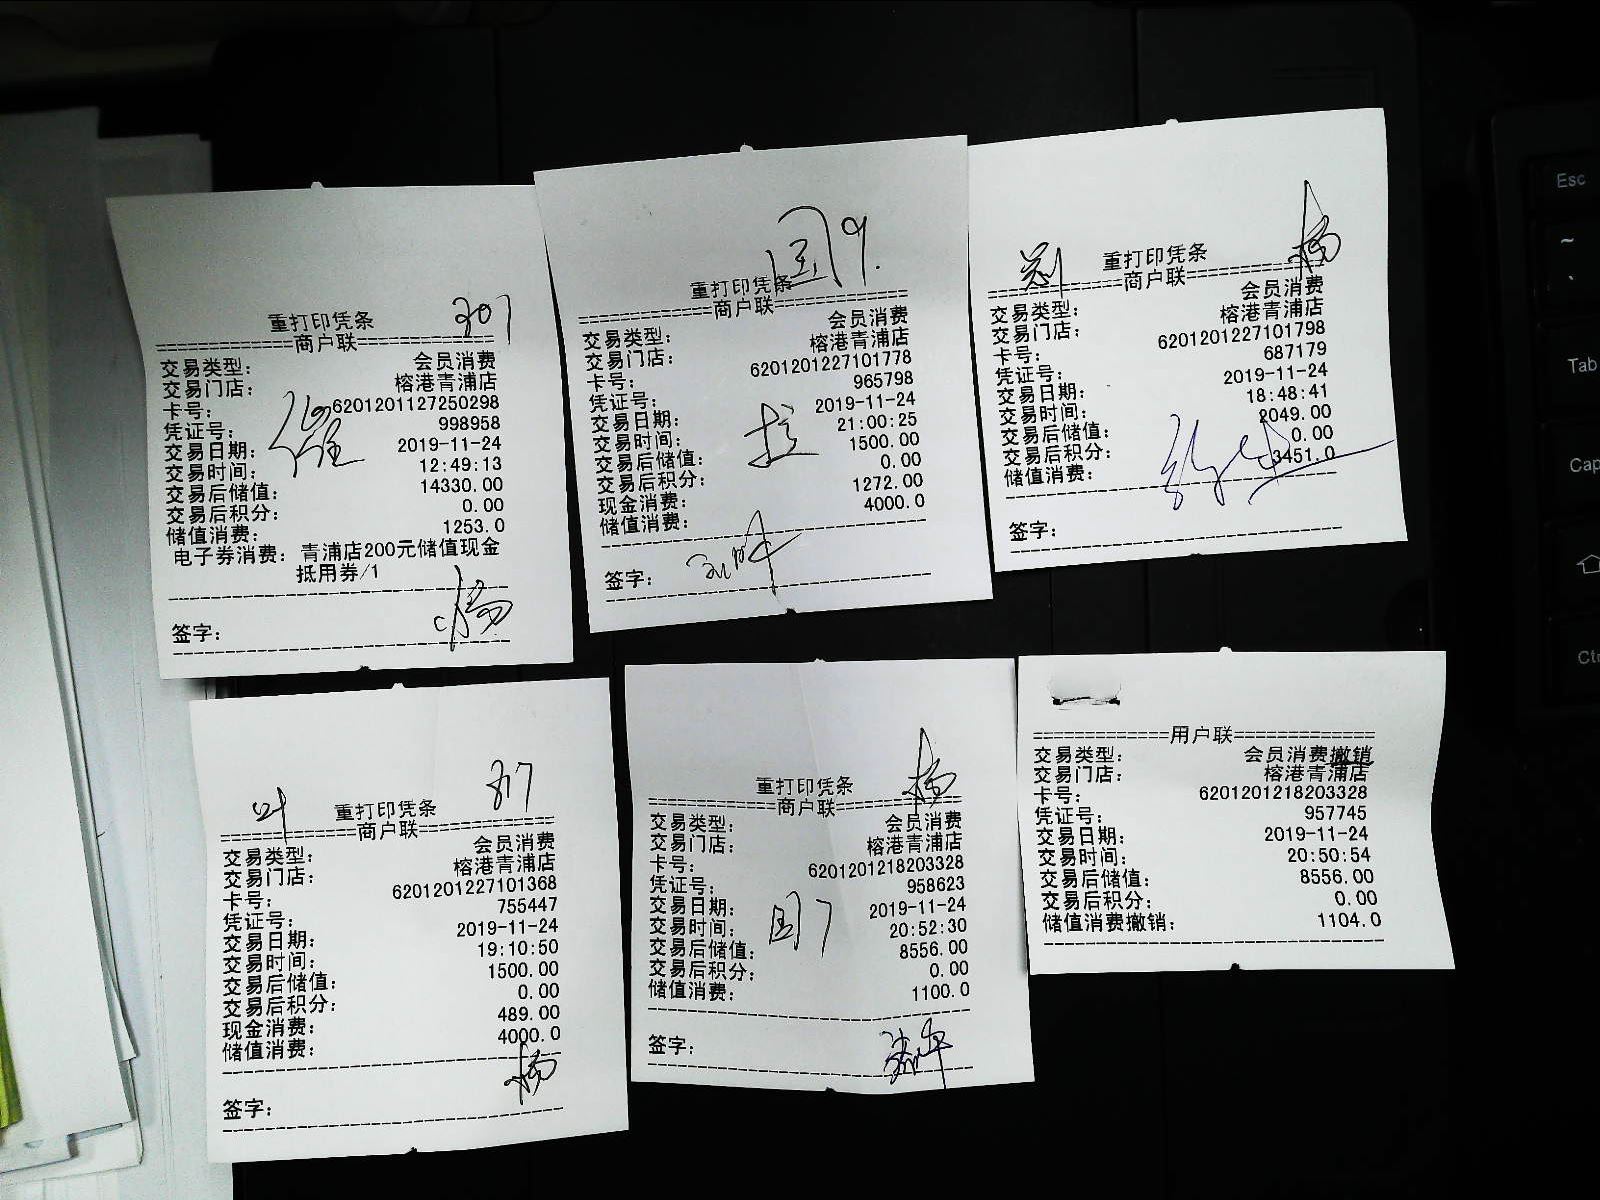 307
重打印凭条
================商户联================
交易类型: 会员消费
交易门店: 榕港青浦店
卡号: 6201201127250298
凭证号: 998958
交易日期: 2019-11-24
交易时间: 12:49:13
交易后储值: 14330.00
交易后积分: 0.00
储值消费: 1253.0
电子券消费: 青浦店200元储值现金
抵用券/1
签字:
国9.
重打印凭条
================商户联================
交易类型: 会员消费
交易门店: 榕港青浦店
卡号: 6201201227101778
凭证号: 965798
交易日期: 2019-11-24
交易时间: 21:00:25
交易后储值: 1500.00
交易后积分: 0.00
现金消费: 1272.00
储值消费: 4000.0
签字:
重打印凭条
杨
================商户联================
交易类型: 会员消费
交易门店: 榕港青浦店
卡号: 6201201227101798
凭证号: 687179
交易日期: 2019-11-24
交易时间: 18:48:41
交易后储值: 2049.00
交易后积分: 0.00
储值消费: 3451.0
签字:
817
重打印凭条
================商户联================
交易类型: 会员消费
交易门店: 榕港青浦店
卡号: 6201201227101368
凭证号: 755447
交易日期: 2019-11-24
交易时间: 19:10:50
交易后储值: 1500.00
交易后积分: 0.00
现金消费: 489.00
储值消费: 4000.0
签字:
杨
重打印凭条
杨
================商户联================
交易类型: 会员消费
交易门店: 榕港青浦店
卡号: 6201201218203328
凭证号: 958623
交易日期: 2019-11-24
交易时间: 20:52:30
国7
交易后储值: 8556.00
交易后积分: 0.00
储值消费: 1100.0
签字:
================用户联================
交易类型: 会员消费撤销
交易门店: 榕港青浦店
卡号: 6201201218203328
凭证号: 957745
交易日期: 2019-11-24
交易时间: 20:50:54
交易后储值: 8556.00
交易后积分: 0.00
储值消费撤销: 1104.0
Esc
~
Tab